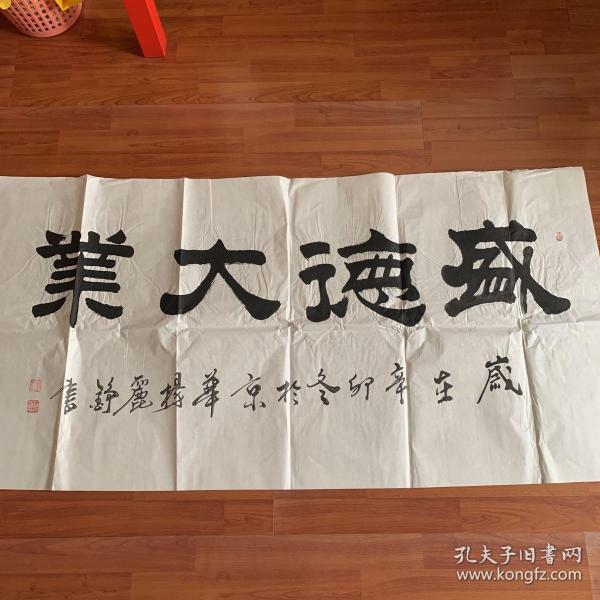 盛德大業
歲在辛卯冬於京華楊麗舒書
孔夫子旧书网
www.kongfz.com